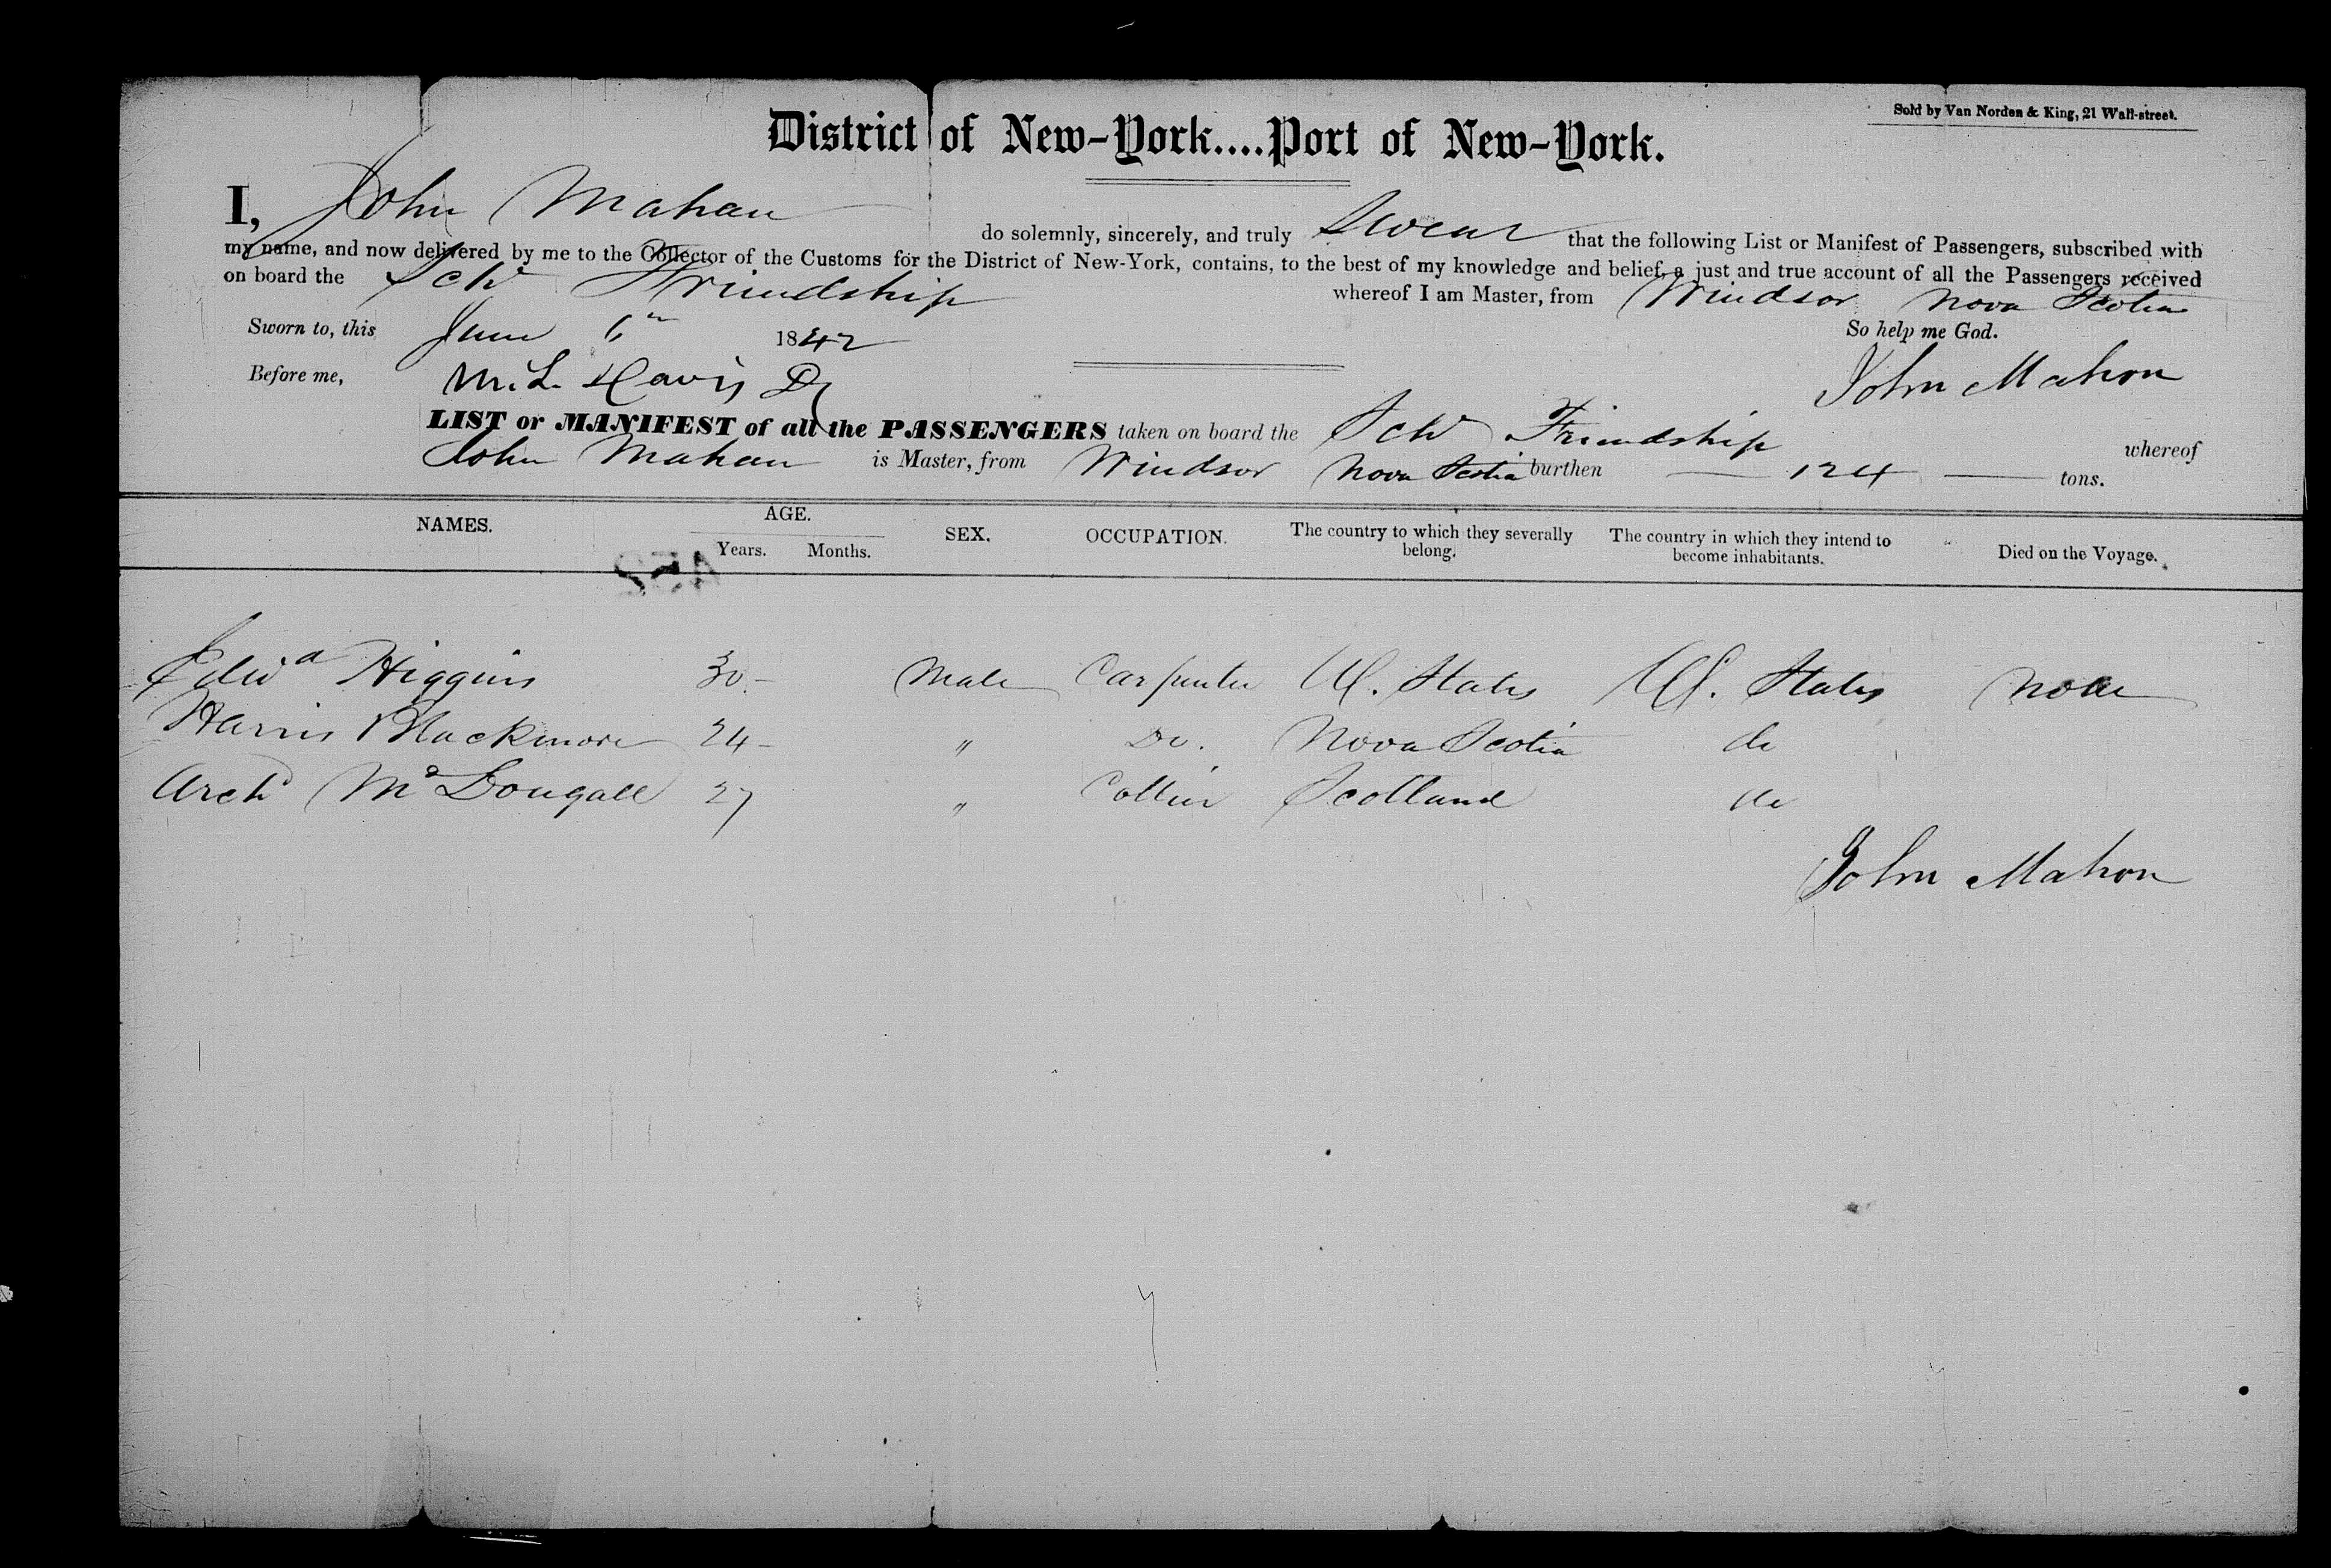 Sold by Van Norden & King, 21 Wall-street.
District of New-York....Port of New-York.
I, John Mahan do solemnly, sincerely, and truly Swear that the following List or Manifest of Passengers, subscribed with
my name, and now delivered by me to the Collector of the Customs for the District of New-York, contains, to the best of my knowledge and belief, a just and true account of all the Passengers received
on board the Schr Friendship whereof I am Master, from Windsor Nova Scotia
Sworn to, this June 6th 1842 So help me God.
Before me, M. L. Davis John Mahon
LIST or MANIFEST of all the PASSENGERS taken on board the Schr Friendship whereof
John Mahan is Master, from Windsor Nova Scotia burthen 124 tons.
NAMES. AGE. Years. Months. SEX. OCCUPATION. The country to which they severally belong. The country in which they intend to become inhabitants. Died on the Voyage.
Edwd Higgins 30 - Male Carpenter U. States U. States None
Harris Blackmore 24 - " Do. Nova Scotia do
Archd McDougall 27 " Collier Scotland do
John Mahon